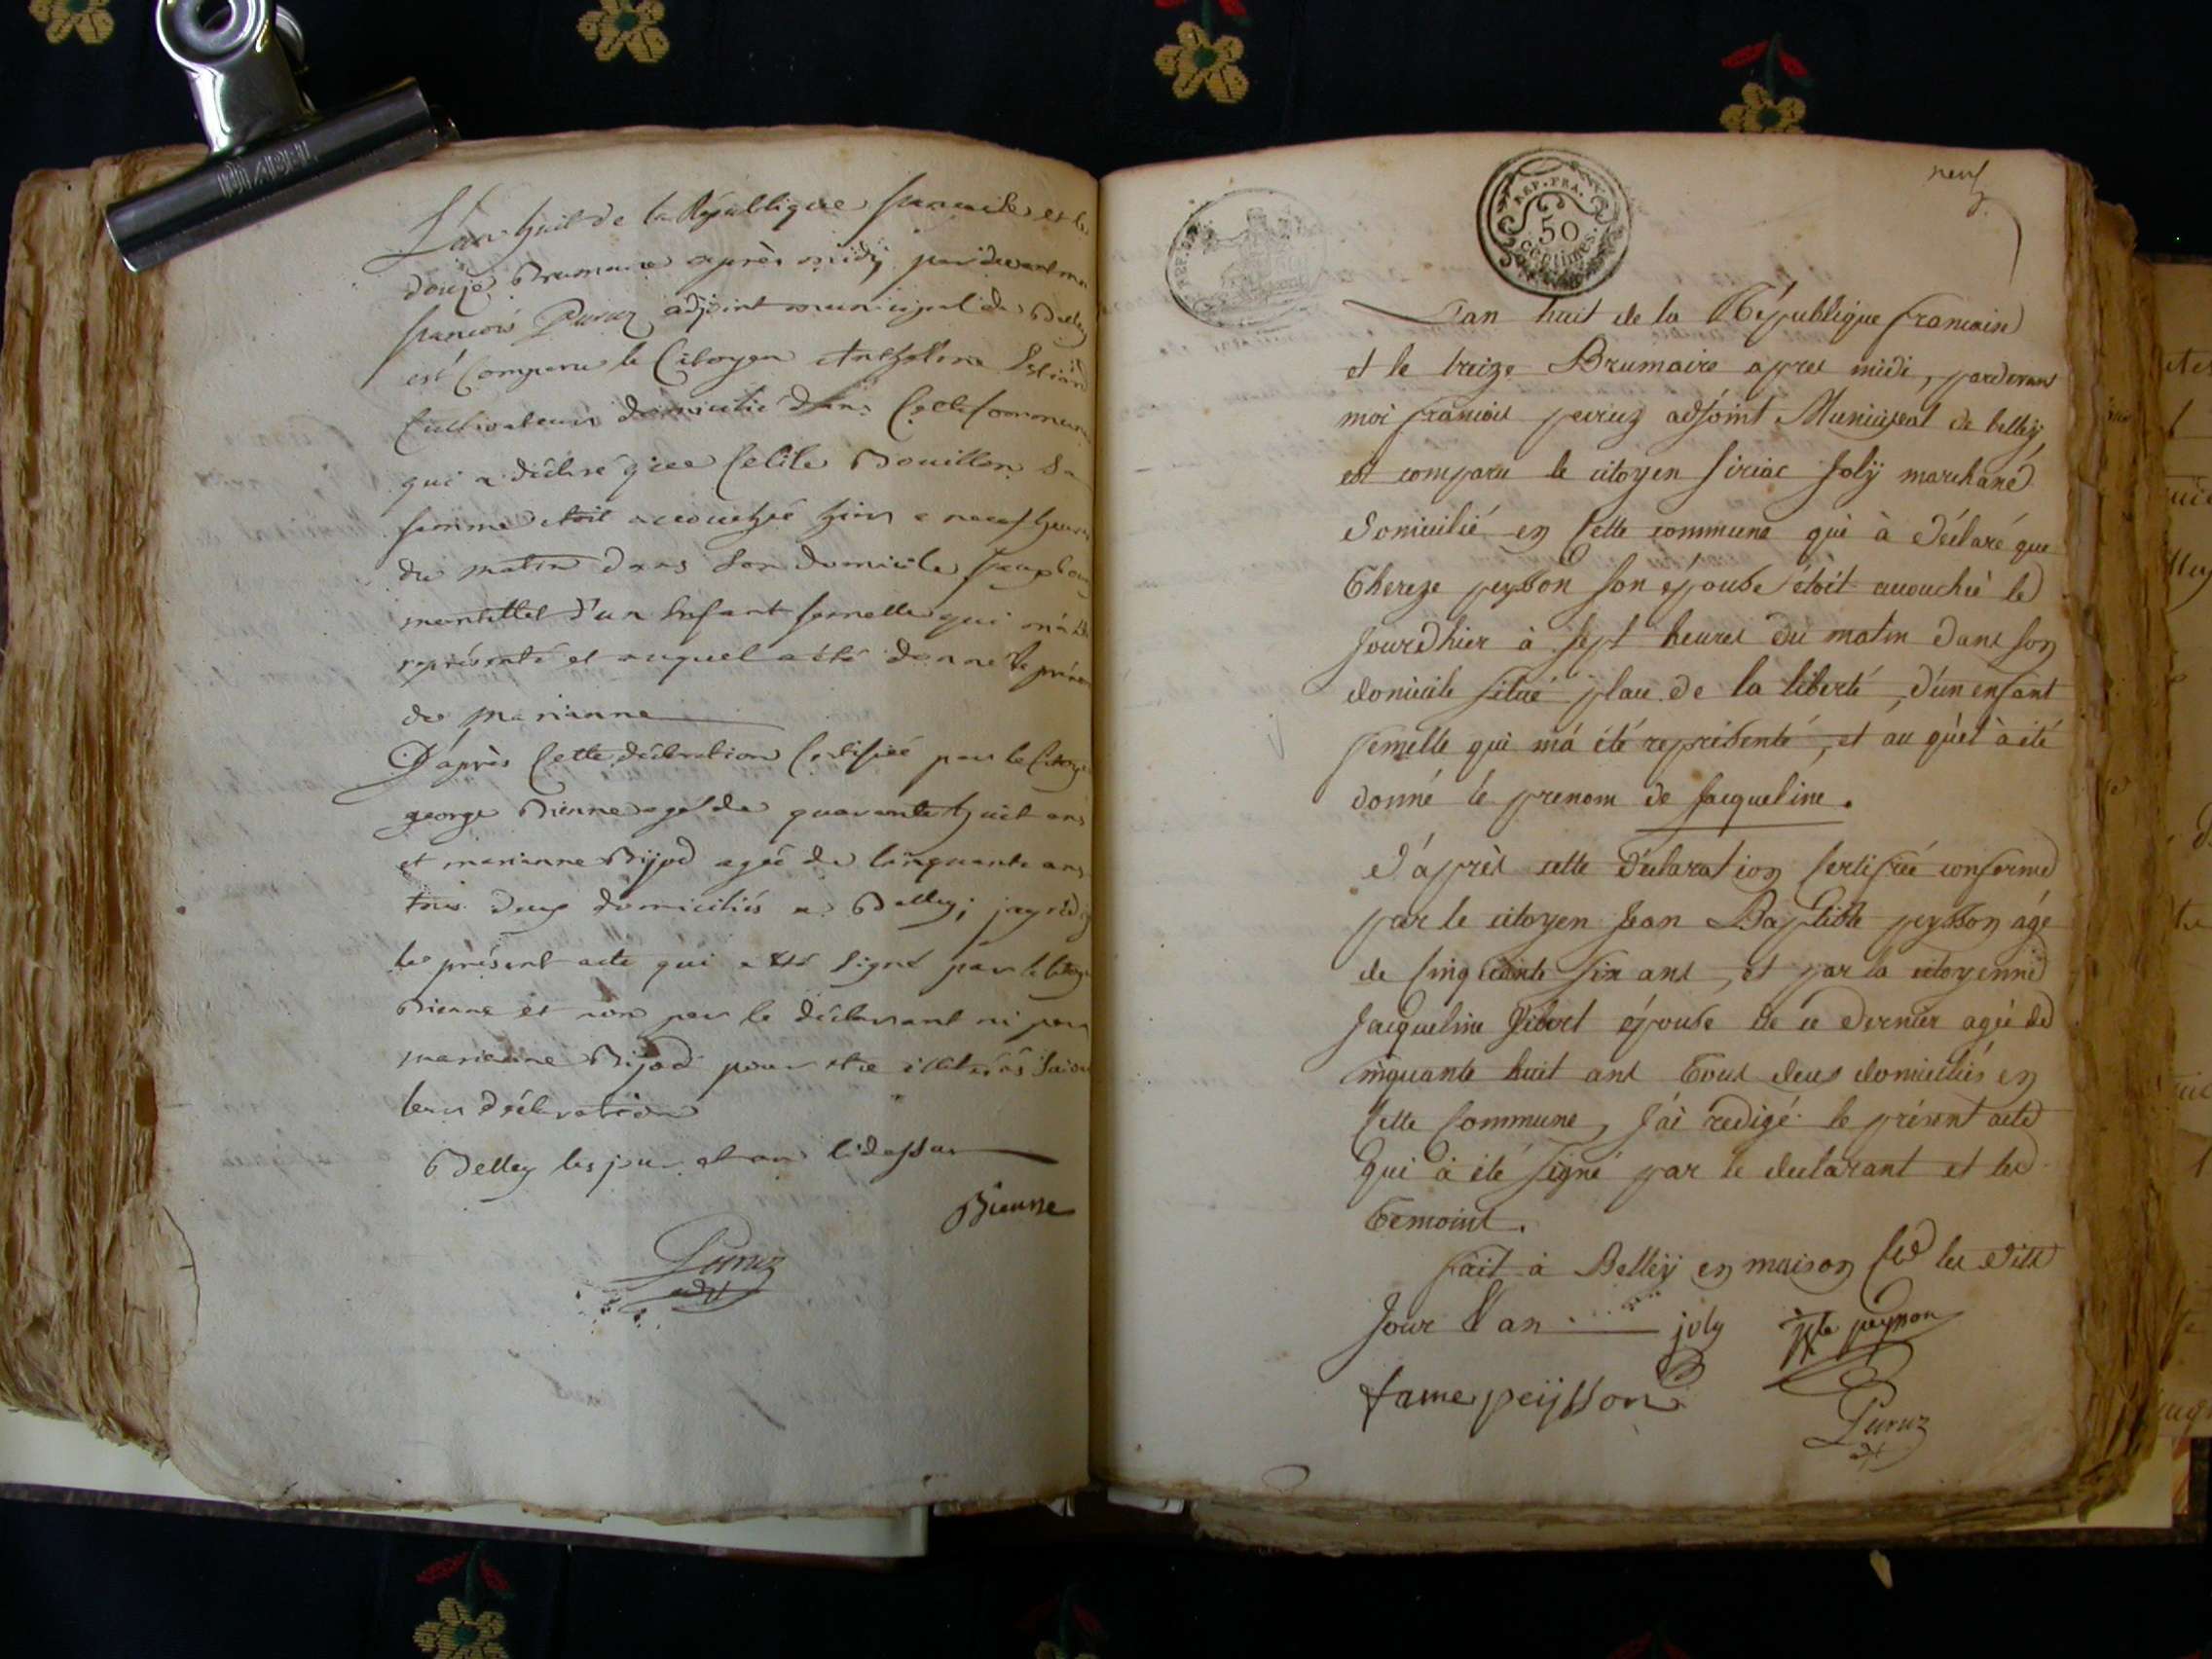 L'an huit de la République française et le
douze Brumaire après midy par devant moi
francois Peruz adjoint municipal de Belley
est Comparu le Citoyen Anthelme
Cultivateur domicilié dans Cette Commune
qui a déclaré que Celile Bouillon Sa
femme etoit accouchée hier a neuf heures
du matin dans Son domicile
d'un Enfant femelle qui m'a été
représenté et auquel a été donné le prénom
de marianne
D'après Cette déclaration Certifiée par le Citoyen
george Bienne agé de quarante huit ans
et marianne Bijod agée de Cinquante ans
tous deux domiciliés a Belley; jay rédigé
le présent acte qui a été Signé par le Citoyen
Bienne et non par le déclarant ni par
marianne Bijod pour etre illitérés Suivant
leur déclaration
Belley les jour et an Cidessus
Bienne
Peruz
adjt
neuf
REP. FRA.
50
centimes.
L'an huit de la République francaise
et le treize Brumaire apres midi, pardevant
moi francois peruz adjoint Municipal de belleÿ
est comparu le citoyen Siriac Jolÿ marchand
Domicilié en Cette commune qui à Déclaré que
Thereze peysson Son épouse étoit accouchée le
Jourdhier à Sept heures du matin dans Son
domicile Situé place de la liberté, d'un enfant
femelle qui má été représenté, et au quel à été
donné le prenom de Jacqueline.
D'après cette Déclaration Certifiée conforme
par le citoyen Jean Baptiste peysson agé
de Cinquante Six ans, et par la citoyenne
Jacqueline épouse de ce dernier agée de
cinquante huit ans Tous deux domiciliés en
Cette Commune, J'ai redigé le présent acte
Qui à été Signé par le declarant et les
Temoins.
fait à Belleÿ en maison les Dits
Jour & an joly Jn Bte peysson
fame peijsson
Peruz
adjt